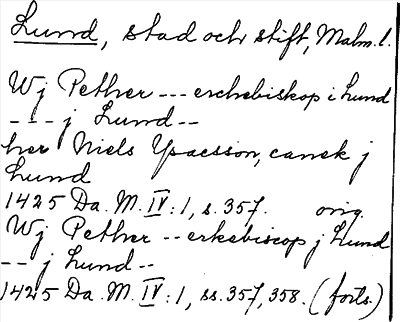 Lund, stad och stift, Malm. l.
Wj Pether --- erchebiskop i Lund
--- j Lund --
her Niels Ysacsson, canek j
Lund
1425 Da. M. IV: 1, s. 357. orig.
Wj Pether -- erkebiscop j Lund
-- j Lund --
1425 Da. M. IV: 1, ss. 357, 358. (forts.)